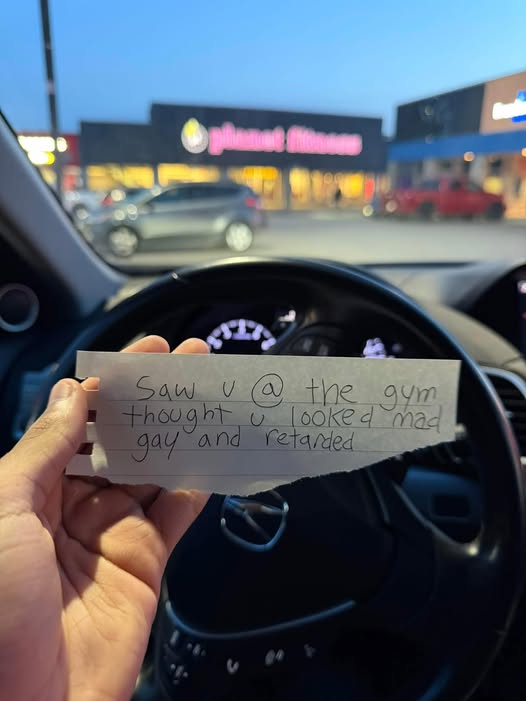 planet fitness
Saw u @ the gym
thought u looked mad
gay and retarded